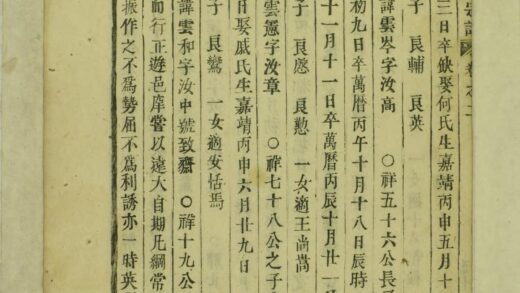 三日卒缺娶何氏生嘉靖丙申五月十
子 良輔 良英
諱雲岑字汝高 ○祥五十六公長子
初九日卒萬曆丙午十月十八日辰時
十一月十一日卒萬曆丙辰十月廿一
子 良愿 良懃 一女適王尚嵩
雲 字汝章 ○祥七十八公之子
日娶戚氏生嘉靖丙申六月廿九日
子 良鸞 一女適安恬焉
諱雲和字汝中號致齋 ○祥十九公
而行正遊邑庠嘗以遠大自期凡綱常
振作之不爲勢屈不爲利誘亦一時英